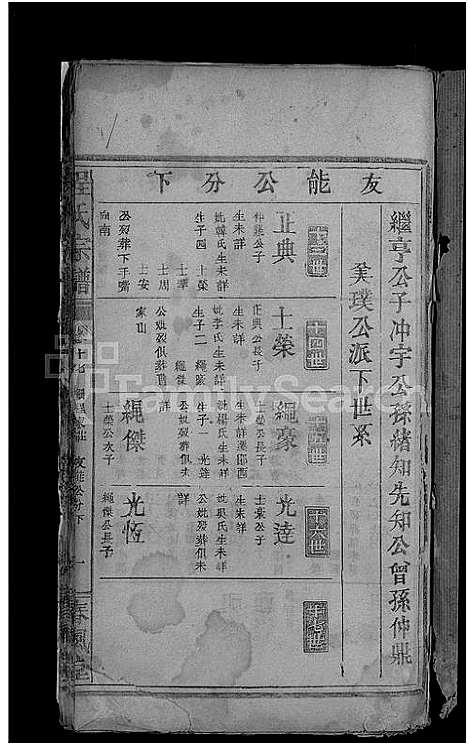 友能公分下
繼亨公子冲宇公孫緒知先知公曾孫仲鼎
美璞公派下世系
十三世
正典
仲鼎公子
生未詳
妣韓氏生未詳
生子四 士榮
士華
士周
士安
公歿葬下手嘴
向南
十四世
士榮
正典公長子
生未詳
妣李氏生未詳
生子二 繩豪
繩傑
公妣歿葬俱未
家山
十五世
繩豪
士榮公長子
生未詳
妣楊氏生未詳
生子一 光逵
公妣歿葬俱未
詳
繩傑
士榮公次子
十六世
光逵
生未詳
妣吳氏生未詳
公妣歿葬俱未
詳
光恆
繩傑公長子
十七世
程氏宗譜
友能公分下
FamilySearch